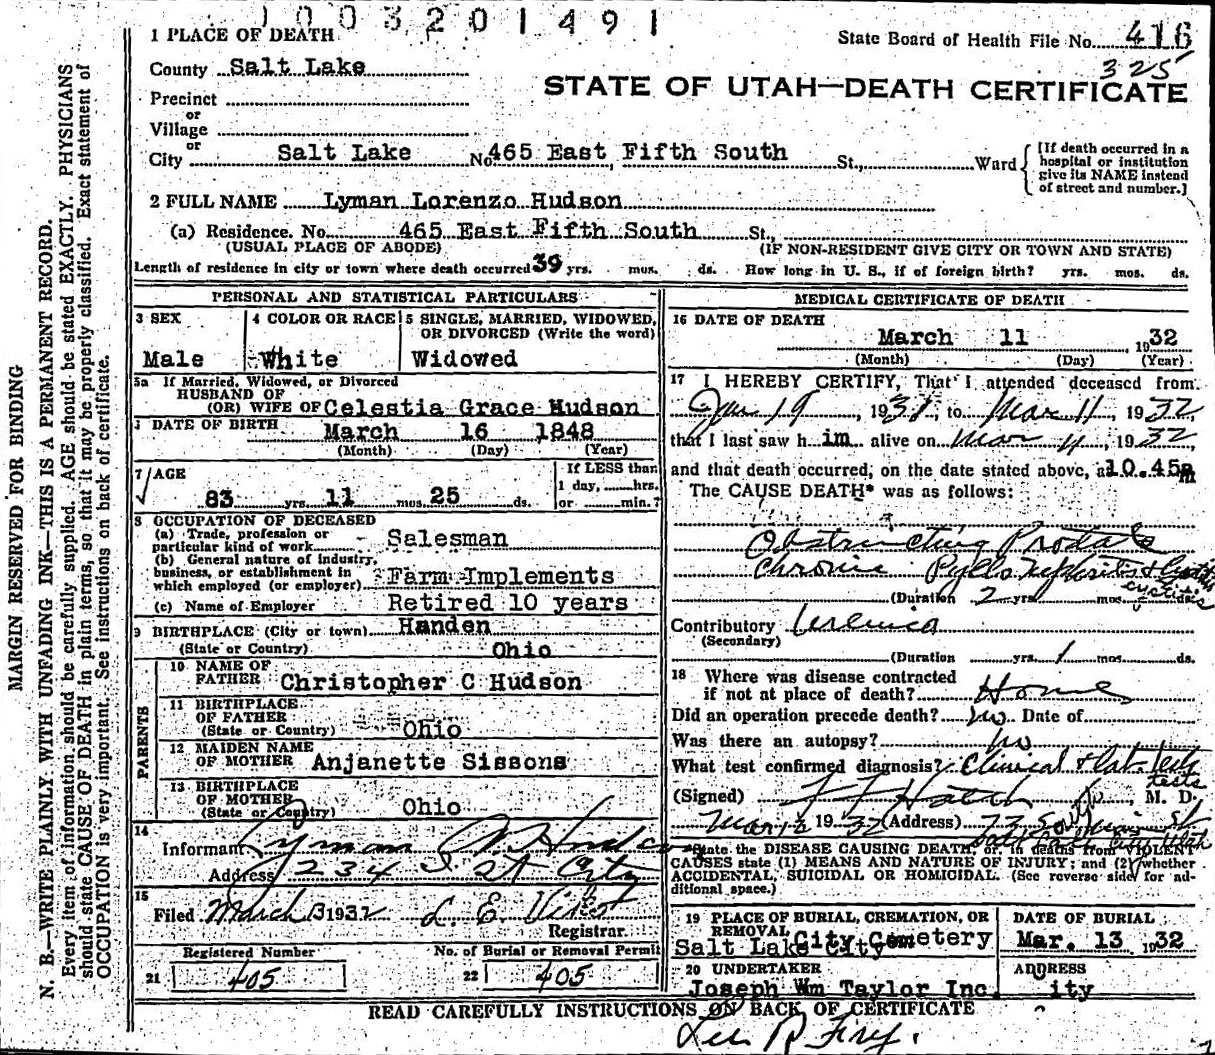 1003201491
1 PLACE OF DEATH
State Board of Health File No. 416
325
County Salt Lake
STATE OF UTAH—DEATH CERTIFICATE
Precinct
or
Village
or
City Salt Lake No. 465 East Fifth South St., Ward
[If death occurred in a
hospital or institution
give its NAME instead
of street and number.]
2 FULL NAME Lyman Lorenzo Hudson
(a) Residence. No. 465 East Fifth South St.,
(USUAL PLACE OF ABODE) (IF NON-RESIDENT GIVE CITY OR TOWN AND STATE)
Length of residence in city or town where death occurred 39 yrs. mos. ds. How long in U. S., if of foreign birth? yrs. mos. ds.
PERSONAL AND STATISTICAL PARTICULARS
3 SEX
Male
4 COLOR OR RACE
White
5 SINGLE, MARRIED, WIDOWED,
OR DIVORCED (Write the word)
Widowed
5a If Married, Widowed, or Divorced
HUSBAND OF
(OR) WIFE OF Celestia Grace Hudson
DATE OF BIRTH March 16 1848
(Month) (Day) (Year)
7 AGE
83 yrs. 11 mos. 25 ds.
If LESS than
1 day, hrs.
or min.?
8 OCCUPATION OF DECEASED
(a) Trade, profession or
particular kind of work Salesman
(b) General nature of industry,
business, or establishment in
which employed (or employer) Farm Implements
(c) Name of Employer Retired 10 years
9 BIRTHPLACE (City or town) Handen
(State or Country) Ohio
PARENTS
10 NAME OF
FATHER Christopher C Hudson
11 BIRTHPLACE
OF FATHER
(State or Country) Ohio
12 MAIDEN NAME
OF MOTHER Anjanette Sissons
13 BIRTHPLACE
OF MOTHER
(State or Country) Ohio
14
Informant Lyman Hudson
Address 234 I St City
15
Filed March 13 1932 L. E.
Registrar.
Registered Number
21 405
No. of Burial or Removal Permit
22 405
MEDICAL CERTIFICATE OF DEATH
16 DATE OF DEATH
March 11 1932
(Month) (Day) (Year)
17 I HEREBY CERTIFY, That I attended deceased from
19, 1931, to Mar 11, 1932,
that I last saw him alive on Mar 11, 1932,
and that death occurred, on the date stated above, at 10.45a m
The CAUSE DEATH* was as follows:
Obstructing Prostate
Chronic Pyelo nephritis &
cystitis
(Duration 2 yrs. mos. ds.
Contributory Uremia
(Secondary)
(Duration yrs. 1 mos. ds.
18 Where was disease contracted
if not at place of death? Home
Did an operation precede death? no Date of
Was there an autopsy? no
What test confirmed diagnosis? Clinical & Lab. Tests
tests
(Signed) F F Hatch, M. D.
Mar 12 1932 (Address) 73 So
*State the DISEASE CAUSING DEATH, or in deaths from VIOLENT
CAUSES state (1) MEANS AND NATURE OF INJURY; and (2) whether
ACCIDENTAL, SUICIDAL OR HOMICIDAL. (See reverse side for ad-
ditional space.)
19 PLACE OF BURIAL, CREMATION, OR
REMOVAL City Cemetery
Salt Lake City
DATE OF BURIAL
Mar. 13 1932
20 UNDERTAKER
Joseph Wm Taylor Inc.
ADDRESS
ity
READ CAREFULLY INSTRUCTIONS ON BACK OF CERTIFICATE
MARGIN RESERVED FOR BINDING
N. B.—WRITE PLAINLY WITH UNFADING INK—THIS IS A PERMANENT RECORD.
Every item of information should be carefully supplied. AGE should be stated EXACTLY. PHYSICIANS
should state CAUSE OF DEATH in plain terms, so that it may be properly classified. Exact statement of
OCCUPATION is very important. See instructions on back of certificate.